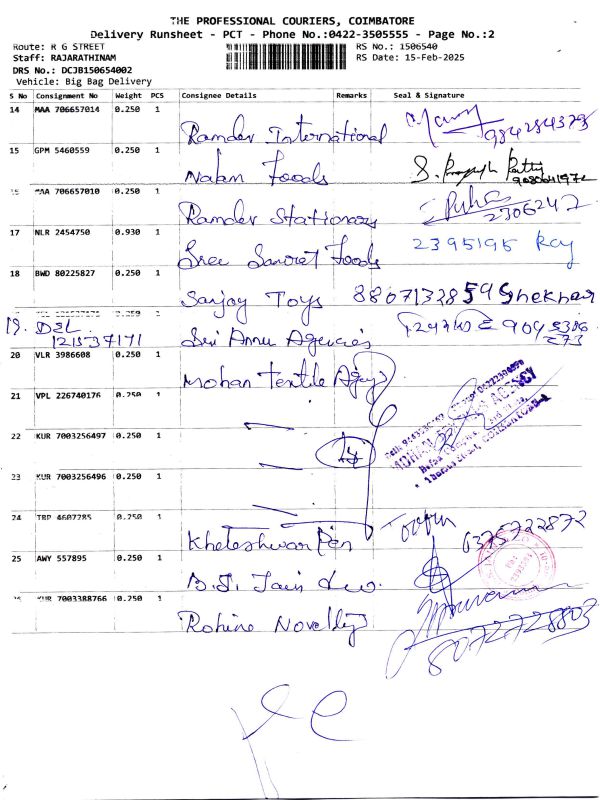 THE PROFESSIONAL COURIERS, COIMBATORE
Delivery Runsheet - PCT - Phone No.:0422-3505555 - Page No.:2
Route: R G STREET RS No.: 1506540
Staff: RAJARATHINAM RS Date: 15-Feb-2025
DRS No.: DCJB150654002
Vehicle: Big Bag Delivery
S No Consignment No Weight PCS Consignee Details Remarks Seal & Signature
14 MAA 706657014 0.250 1
Ramdev International 9842843795
15 GPM 5460559 0.250 1
Nalan Foods
MAA 706657010 0.250 1
Ramdev Stationary 2306247
17 NLR 2454750 0.930 1
Sree Foods 2395195 Ray
18 BWD 80225827 0.250 1
Sanjay Toys 8807132859 Shekhar
19. DEL 121537171 Sri Annu Agencies
20 VLR 3986608 0.250 1
Mohan Textile Agy
21 VPL 226740176 0.250 1
22 KUR 7003256497 0.250 1
23 KUR 7003256496 0.250 1
24 TRP 4607285 0.250 1
Kheteshwar Pen 6375722872
25 AWY 557895 0.250 1
B.J. Jain
KUR 7003388766 0.250 1
Rohine Novelty 8072728803